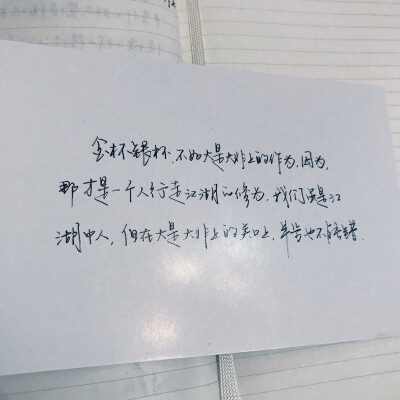 金杯银杯,不如大是大非上的作为,因为,
那才是一个人行走江湖的修为,我们虽是江
湖中人,但在大是大非上的关口上,半步也不能错.